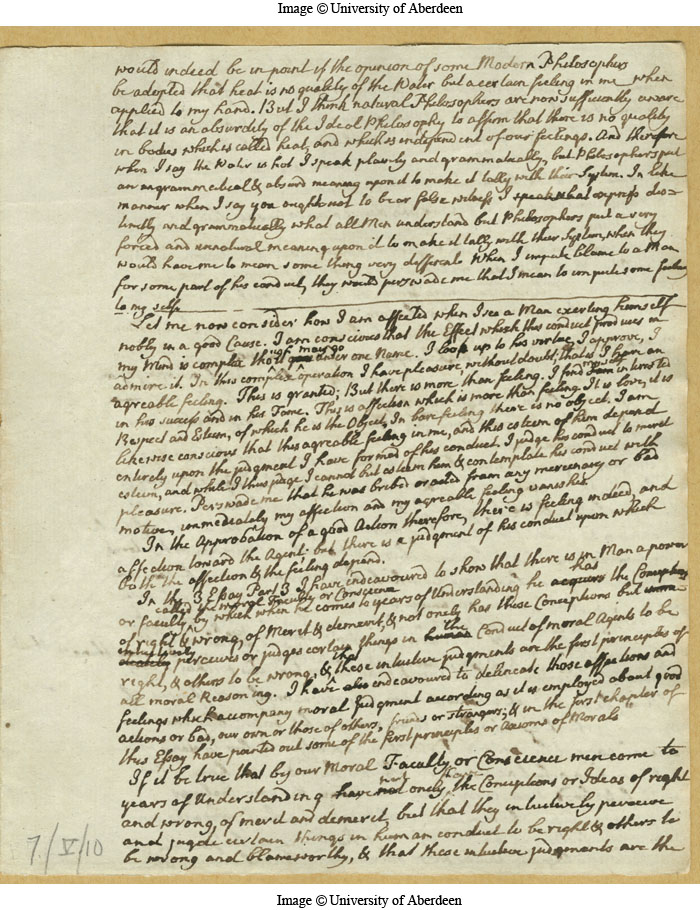 Image © University of Aberdeen
would indeed be in point if the opinion of some Modern Philosophers
be adopted that heat is no quality of the Water but a certain feeling in me when
applied to my hand. But I think natural Philosophers are now sufficiently aware
that it is an absurdity of the Ideal Philosophy to affirm that there is no quality
in bodies which is called heat, and which is independent of our feelings. And therefore
when I say the Water is hot I speak plainly and grammatically, but Philosophers put
an ungrammatical & absurd meaning upon it to make it tally with their System. In like
manner when I say you ought not to bear false witness I express dis=
tinctly and grammatically what all Men understand but Philosophers put a very
forced and unnatural meaning upon it to make it tally with their System, when they
would have me to mean some thing very different. When I impute blame to a Man
for some part of his conduct, they would perswade me that I mean to impute some feeling
to my self.
Let me now consider how I am affected when I see a Man exerting himself
nobly in a good Cause. I am conscious that the Effect which this conduct produces in
my Mind is complex tho it may go under one Name. I look up to his virtue, I approve, I
admire it. In this complex operation I have pleasure, without doubt; that is I have an
agreeable feeling. This is granted; But there is more than feeling. I find my self interested
in his success and in his Fame. This is affection which is more than feeling. It is love, it is
Respect and Esteem, of which he is the Object, In bare feeling there is no object. I am
likewise conscious that this agreeable feeling in me, and this esteem of him depend
entirely upon the judgment I have formed of his conduct. I judge his conduct to merit
esteem, and while I thus judge I cannot but esteem him & contemplate his conduct with
pleasure. Perswade me that he was bribed or acted from any mercenary or bad
motive, immediately my affection and my agreeable feeling vanishes.
In the Approbation of a good Action therefore, there is feeling indeed, and
affection toward the Agent. but there is a judgment of his conduct upon which
both the affection & the feeling depend.
In the 3 Essay Part 3 I have endeavoured to show that there is in Man a power
called the moral Faculty or Conscience has
or faculty by which when he comes to years of Understanding he acquires the Conceptions
of right & wrong, of Merit & demerit, & not onely has these Conceptions but
intuitively the
perceives or judges certain things in human Conduct of moral Agents to be
right, & others to be wrong, & that these intuitive judgments are the first principles of
all moral Reasoning. I have also endeavoured to delineate those affections and
feelings which accompany moral judgment according as it is employed about good
actions or bad, our own or those of others, friends or strangers; & in the first chapter of
this Essay have pointed out some of the first principles or Axioms of Morals
If it be true that by our Moral Faculty or Conscience men come to
not have
years of Understanding have not onely the Conceptions or Ideas of right
and wrong, of merit and demerit, but that they intuitively perceive
and judge certain things in human conduct to be right & others to
be wrong and blameworthy, & that these intuitive judgments are the
7/V/10
Image © University of Aberdeen